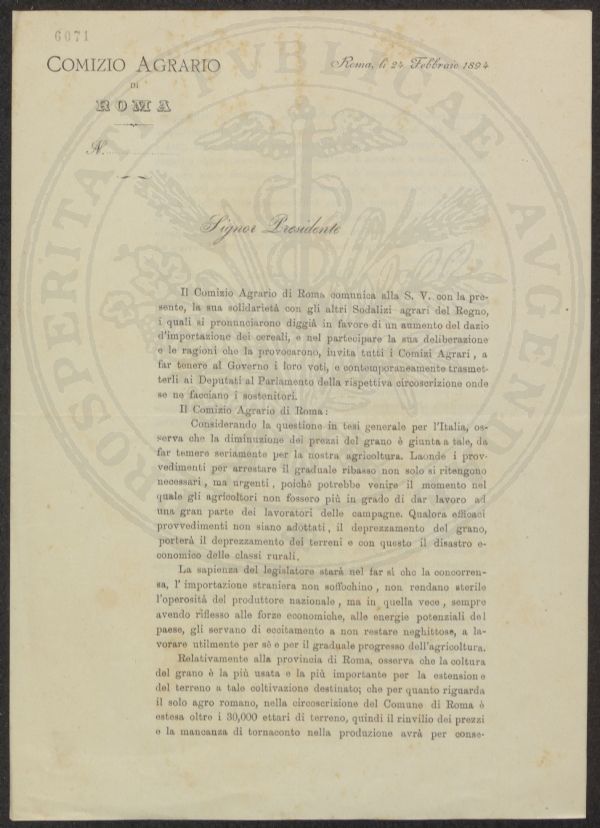 6071
COMIZIO AGRARIO
DI
ROMA
N.
Roma, li 24 Febbraio 1894
PROSPERITATI PUBLICAE AUGENDAE
Signor Presidente
Il Comizio Agrario di Roma comunica alla S. V. con la pre-
sente, la sua solidarietà con gli altri Sodalizi agrari del Regno,
i quali si pronunciarono diggià in favore di un aumento del dazio
d'importazione dei cereali, e nel partecipare la sua deliberazione
e le ragioni che la provocarono, invita tutti i Comizi Agrari, a
far tenere al Governo i loro voti, e contemporaneamente trasmet-
terli ai Deputati al Parlamento della rispettiva circoscrizione onde
se ne facciano i sostenitori.
Il Comizio Agrario di Roma:
Considerando la questione in tesi generale per l'Italia, os-
serva che la diminuzione dei prezzi del grano è giunta a tale, da
far temere seriamente per la nostra agricoltura. Laonde i prov-
vedimenti per arrestare il graduale ribasso non solo si ritengono
necessari, ma urgenti, poichè potrebbe venire il momento nel
quale gli agricoltori non fossero più in grado di dar lavoro ad
una gran parte dei lavoratori delle campagne. Qualora efficaci
provvedimenti non siano adottati, il deprezzamento del grano,
porterà il deprezzamento dei terreni e con questo il disastro e-
conomico delle classi rurali.
La sapienza del legislatore starà nel far sì che la concorren-
sa, l' importazione straniera non soffochino, non rendano sterile
l'operosità del produttore nazionale, ma in quella vece, sempre
avendo riflesso alle forze economiche, alle energie potenziali del
paese, gli servano di eccitamento a non restare neghittose, a la-
vorare utilmente per sè e per il graduale progresso dell'agricoltura.
Relativamente alla provincia di Roma, osserva che la coltura
del grano è la più usata e la più importante per la estensione
del terreno a tale coltivazione destinato; che per quanto riguarda
il solo agro romano, nella circoscrizione del Comune di Roma è
estesa oltre i 30,000 ettari di terreno, quindi il rinvilio dei prezzi
e la mancanza di tornaconto nella produzione avrà per conse-